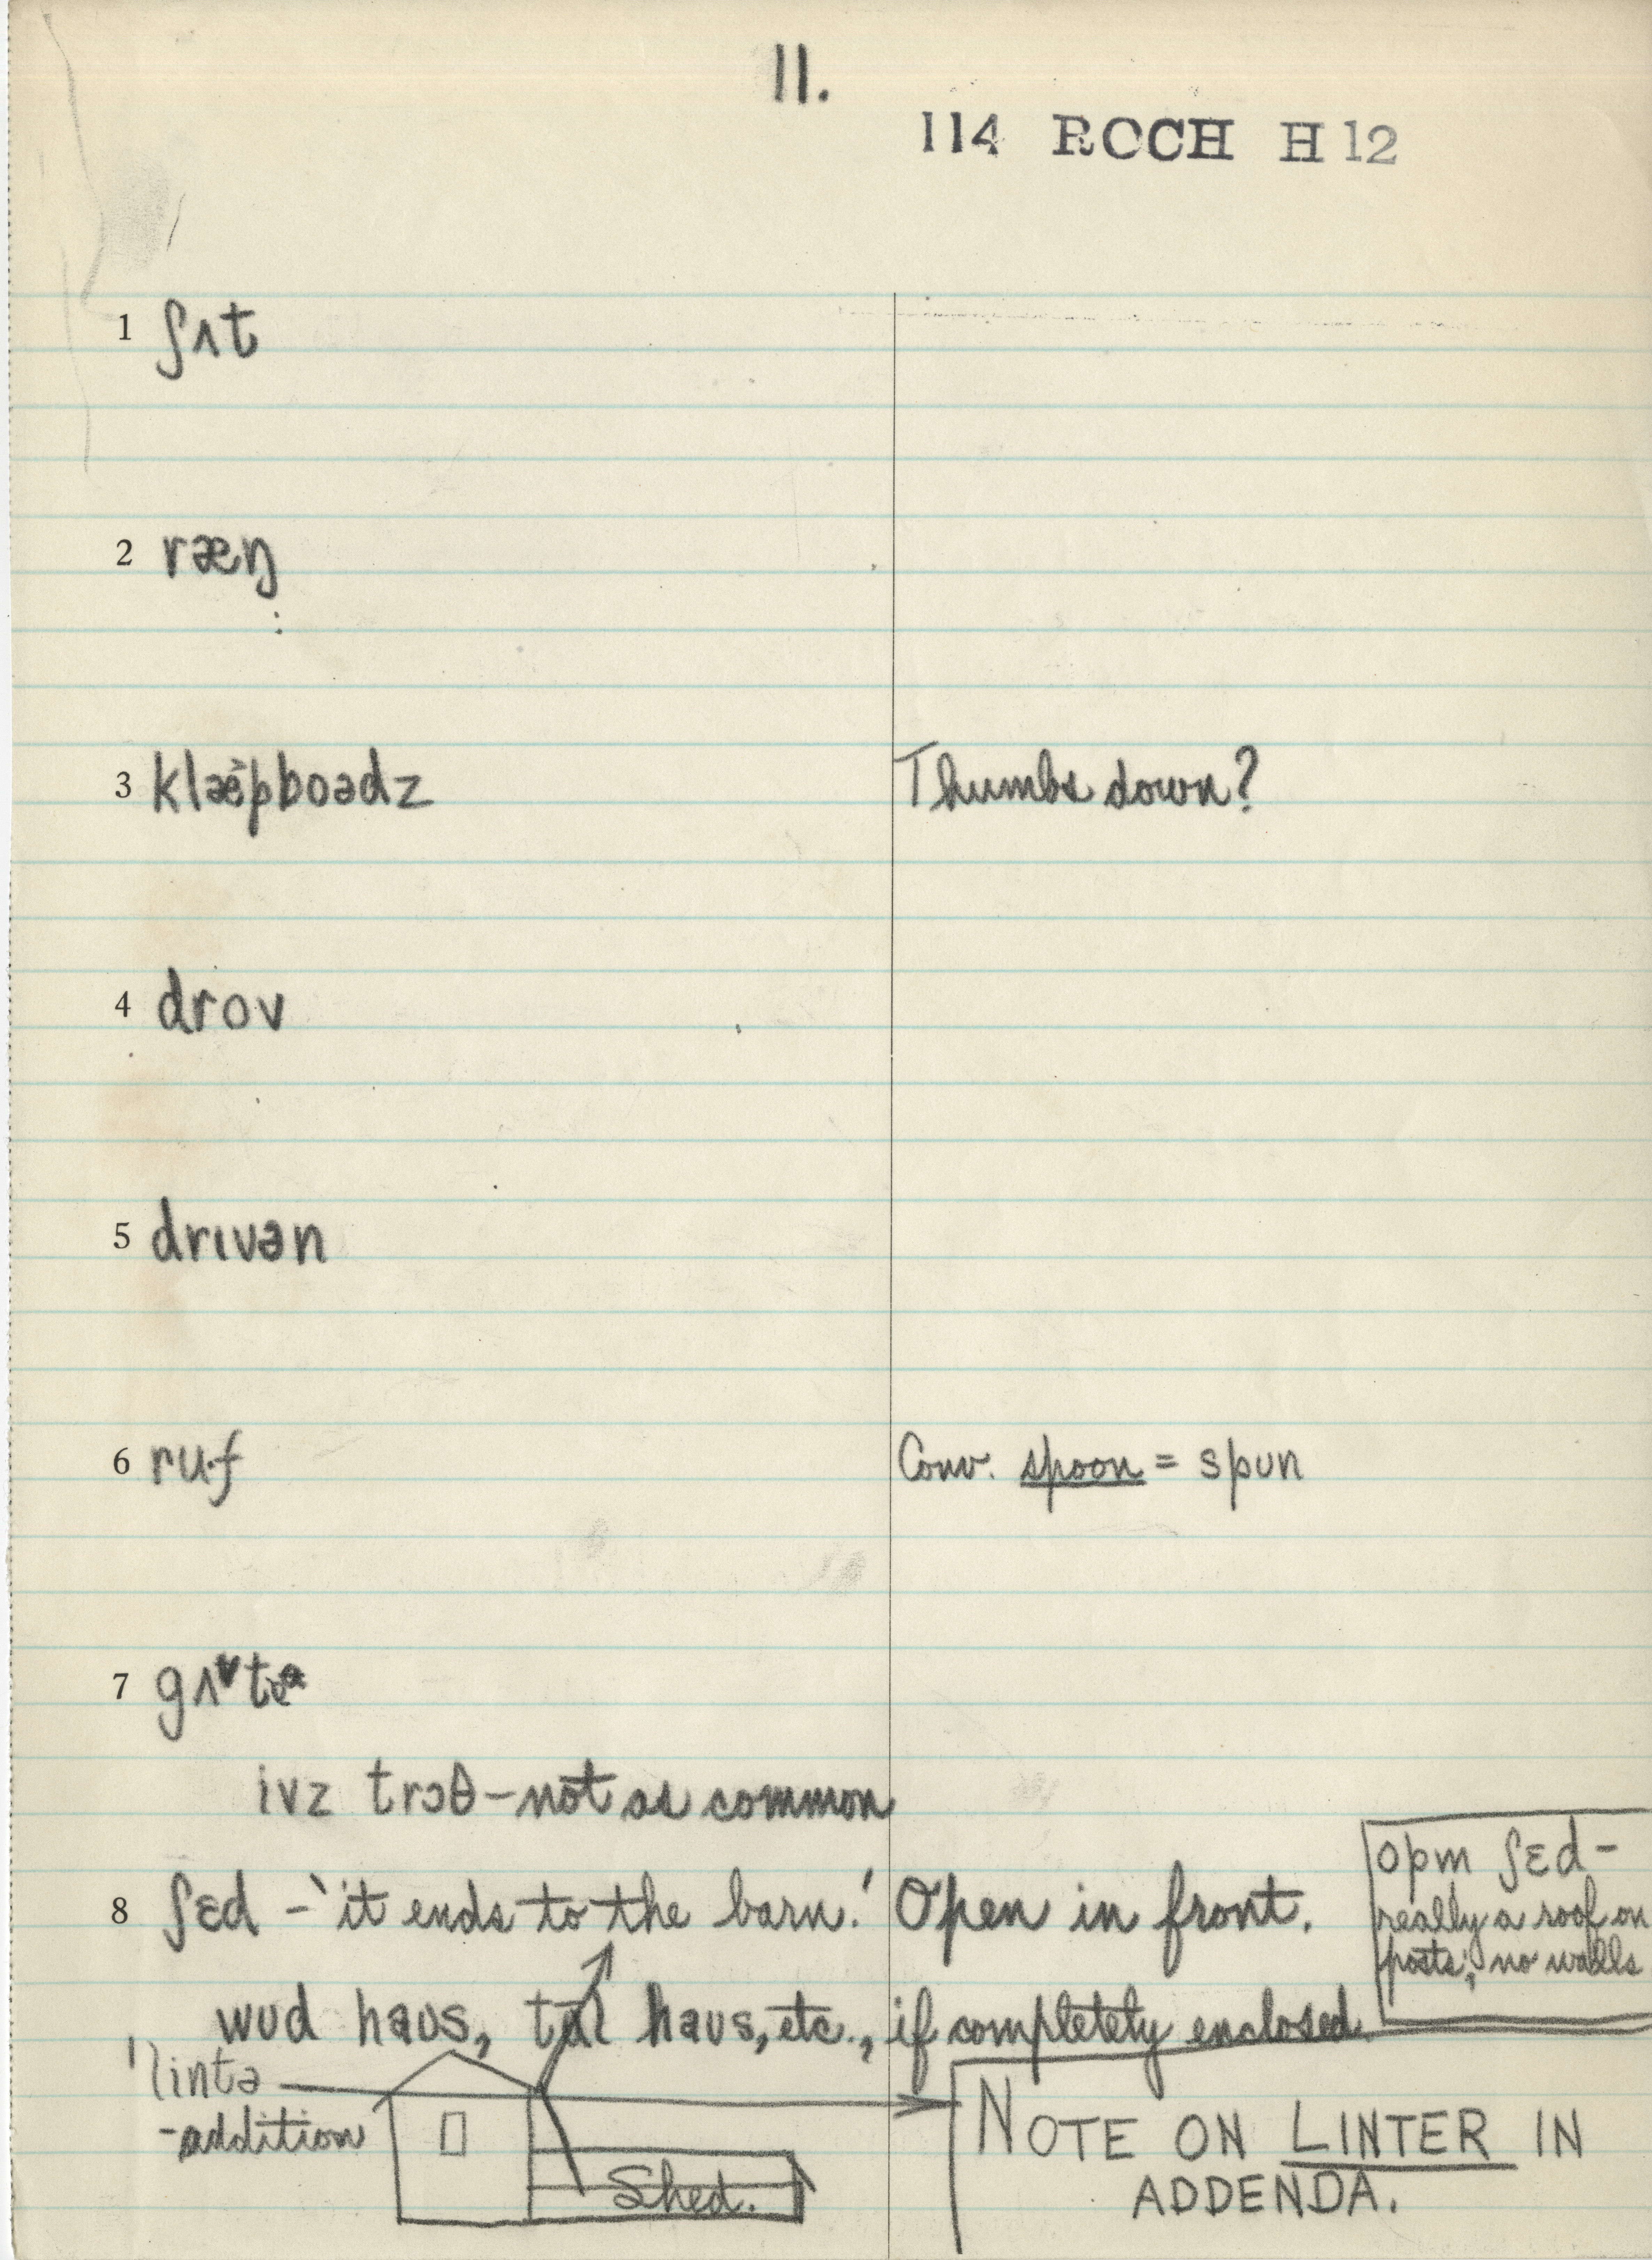 11.
114 ROCH H 12
1 ʃʌt
2 ræŋ
3 klæpboədz Thumbs down?
4 drov
5 drɪvən
6 ru·f Conv. spoon = spʊn
7
ivz trɔθ – not as common
8 ʃɛd – 'it ends to the barn.' Open in front.
opm ʃɛd –
really a roof on
posts; no walls
wʊd haʊs, tul haʊs, etc., if completely enclosed.
lintə
- addition
Shed.
NOTE ON LINTER IN
ADDENDA.